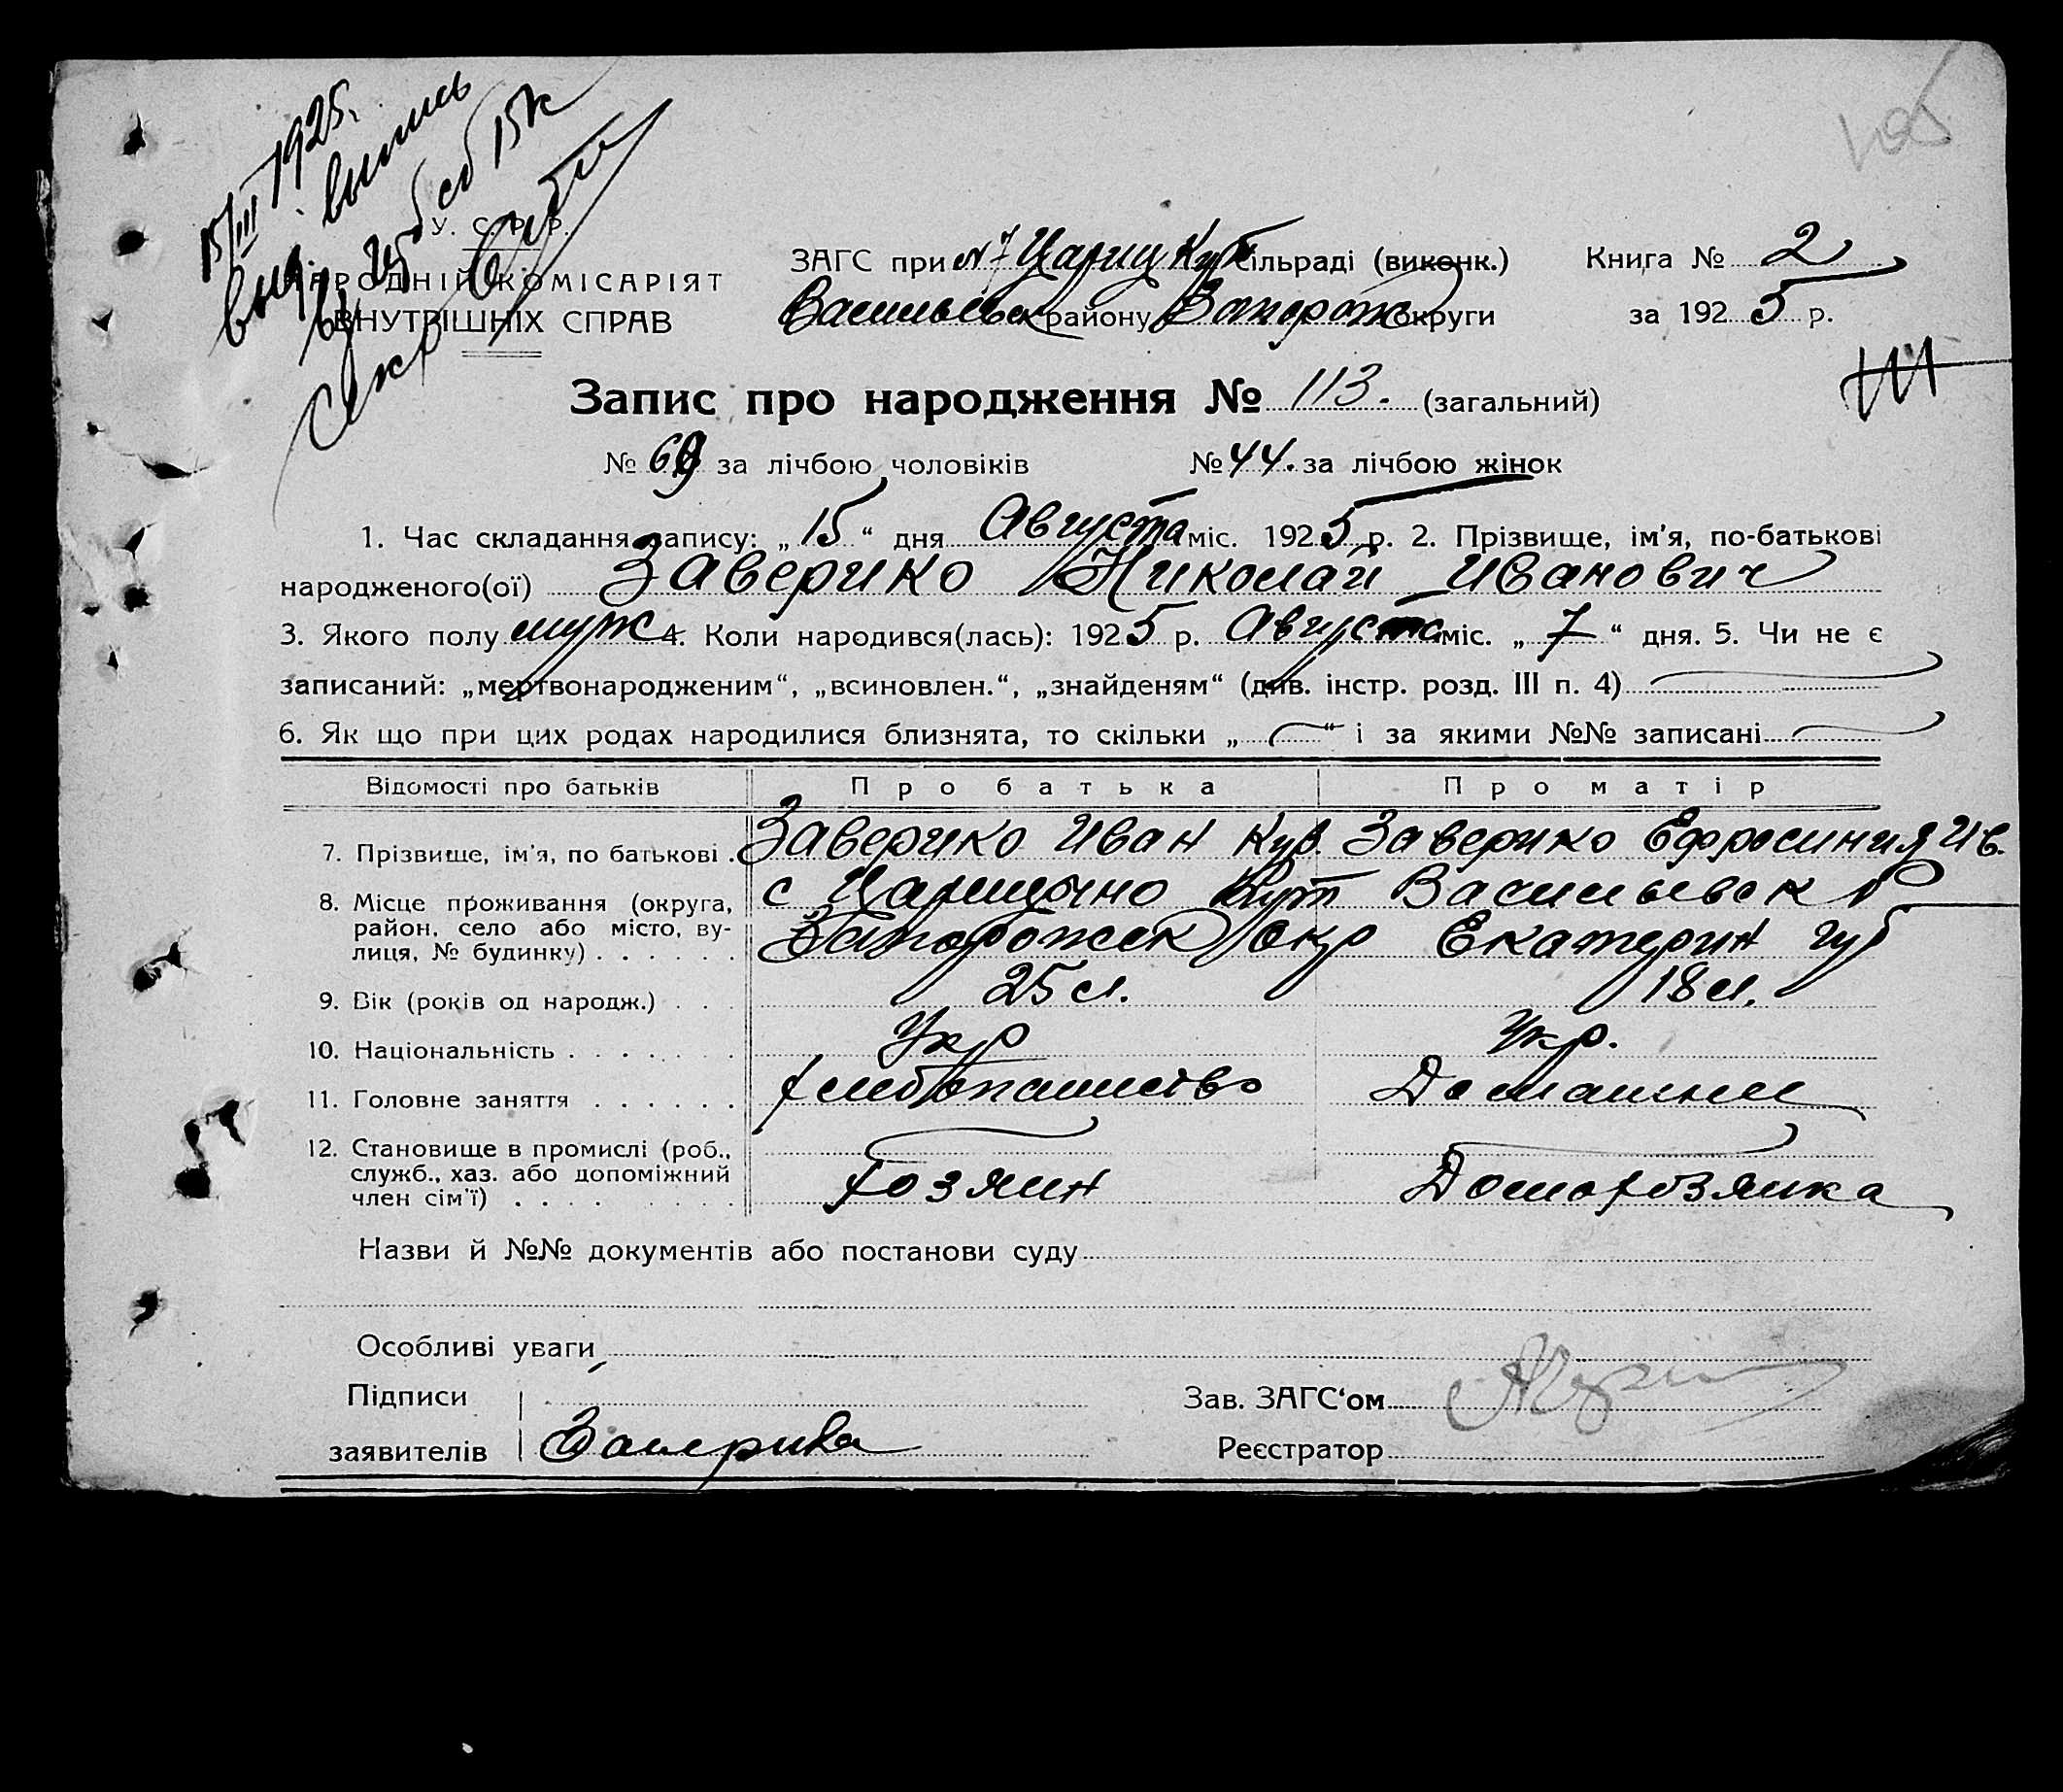 15/III 1925.
выд. выпись
сб 15к
У. С. Р. Р.
НАРОДНІЙ КОМІСАРІЯТ
ВНУТРІШНІХ СПРАВ
ЗАГС при №7 Цариц Кут сільраді (виконк.)
Васильевск району Запорож округи
Книга № 2
за 1925 р.
Запис про народження № 113. (загальний)
№ 69 за лічбою чоловіків № 44. за лічбою жінок
1. Час складання запису: „15“ дня Августа міс. 1925 р. 2. Прізвище, ім’я, по-батькові
народженого(ої) Заверико Николай Иванович
3. Якого полу муж 4. Коли народився(лась): 1925 р. Августа міс. „7“ дня. 5. Чи не є
записаний: „мертвонародженим“, „всиновлен.“, „знайденям“ (див. інстр. розд. III п. 4)
6. Як що при цих родах народилися близнята, то скільки „ “ і за якими №№ записані
Відомості про батьків Про батька Про матір
7. Прізвище, ім’я, по батькові . Заверико Иван Заверико Ефросиния Ив.
8. Місце проживання (округа, с Царицыно Кут Васильевск р
район, село або місто, ву- Запорожск окр Екатерин губ
лиця, № будинку) . . . . . .
9. Вік (років од народж.) . . . 25 л. 18 л.
10. Національність . . . . . . . Укр Укр.
11. Головне заняття . . . . . . Хлебопашество Домашнее
12. Становище в промислі (роб.,
служб., хаз. або допоміжний Хозяин Домохозяйка
член сім’ї) . . . . . . . .
Назви й №№ документів або постанови суду
Особливі уваги
Підписи Зав. ЗАГС‘ом
заявителів Реєстратор